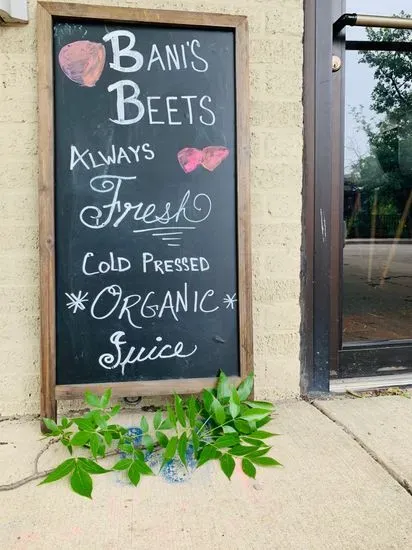 BANI'S
BEETS
ALWAYS
Fresh
COLD PRESSED
*ORGANIC*
Juice